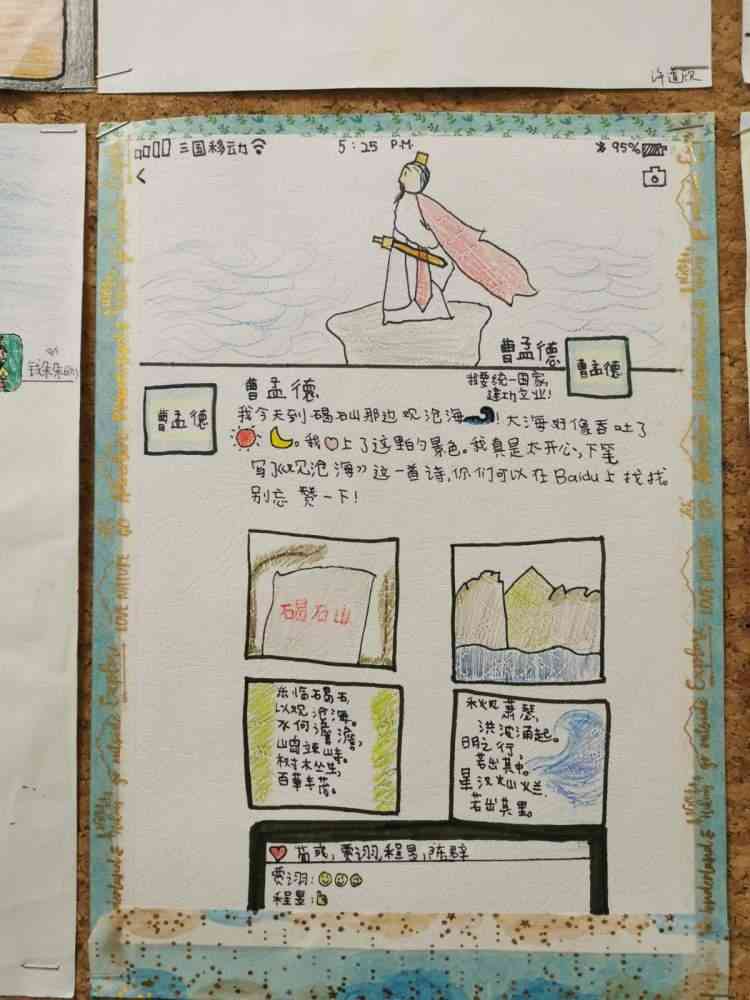 许道欣
三国移动
5:25 P.M.
95%
曹孟德
曹孟德
我要统一国家,
建功立业!
曹孟德
曹孟德
我今天到碣石山那边观沧海!大海好像吞吐了
。我上了这里的景色。我真是太开心,下笔
写了《观沧海》这一首诗,你们可以在Baidu上找找。
别忘赞一下!
碣石山
东临碣石,
以观沧海。
水何澹澹,
山岛竦峙。
树木丛生,
百草丰茂。
秋风萧瑟,
洪波涌起。
日月之行,
若出其中。
星汉灿烂,
若出其里。
荀彧,贾诩,程昱,陈群
贾诩:
程昱:
LOVE NATURE
Explore
go outside